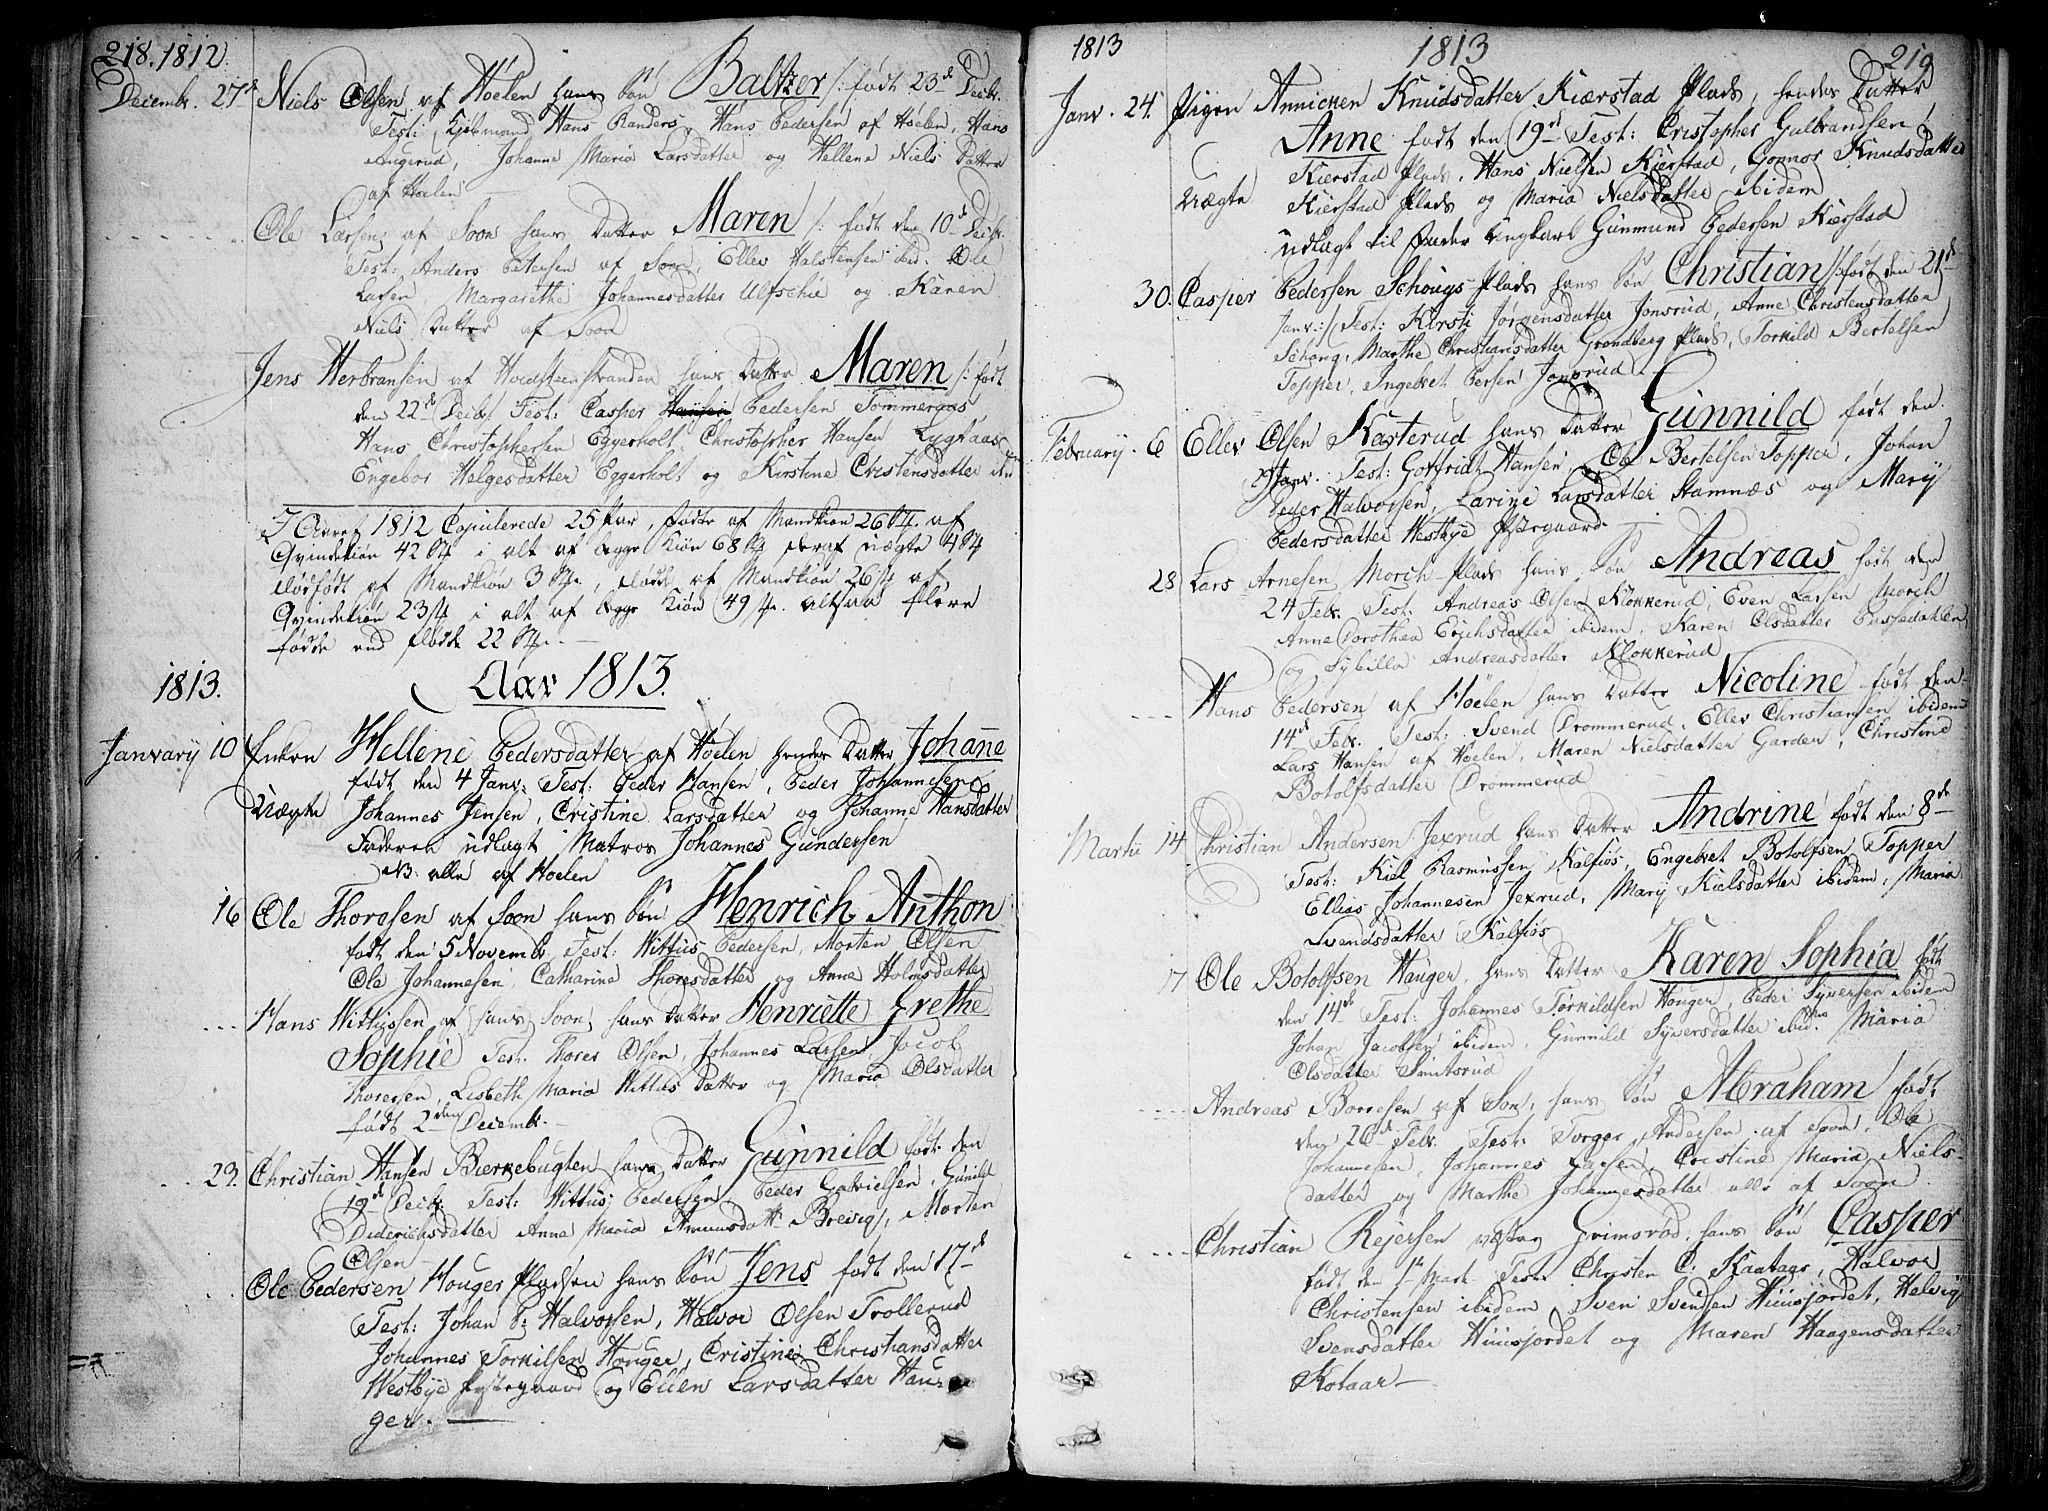 218. 1812.
Decembr. 27de Niels Olsen af Høelen hans Søn Baltzer /: født 23de Decbr.
Test: Kjøbmand Hans Randers, Hans Pedersen af Høelen, Hans
Angerud, Johanne Maria Larsdatter og Hellene Niels Datter
af Høelen
Ole Larsen af Soon hans Datter Maren /: født den 10de Decbr.
Test: Anders Petersen af Soon, Ellev Halstensen ibid. Ole
Larsen, Margarethe Johannesdatter Ulfschie og Karen
Niels Datter af Soon
Jens Herbransen af Hvidsteenstranden hans Datter Maren /: født
den 22de Decbr. Test: Casper Pedersen Tømmeraas,
Hans Christophersen Eggerholt, Christopher Hansen Lygtaas
Engebor Helgesdatter Eggerholt og Kirstine Cristensdatter ibid
I Aaret 1812 Copulerede 25 Par, fødte af Mandkiøn 26 St. af
Qvindekiøn 42 St. i alt af begge Kiøn 68 St. deraf uægte 4 St
dødfødt af Mandkiøn 3 St., døde af Mandkiøn 26 St. af
Qvindekiøn 23 St i alt af begge Kiøn 49 St. altsaa flere
fødde end døde 22 St.
1813. Aar 1813.
Janvary 10 Enken Hellene Pedersdatter af Høelen hendes Datter Johanne
født den 4 Janv: Test: Peder Hansen, Peder Johannesen
Uægte Johannes Jensen, Cristine Larsdatter og Johanne Hansdatter
Faderen udlagt Matros Johannes Gundersen
NB: alle af Høelen
16 Ole Thoresen af Soon hans Søn Henrich Anthon
født den 5 Novembr. Test: Wittus Pedersen, Morten Olsen
Ole Johannesen, Catharine Thoresdatter og Anne Holmsdatter
Hans Wittussen af Soon hans Datter Henriette Grethe
Sophie Test. Thores Olsen, Johannes Larsen, Jacob
Thoresen, Lisbeth Maria Wittus datter og Maria Olsdatter
født 2den Decembr.
23. Christian Hansen Bierkebugten hans Datter Gunnild født den
19de Decb. Test: Wittus Pedersen, Peder Gabrielsen, Gunild
Diderichsdatter Anne Maria Amunsdatt Brevig, Morten
Olsen
Ole Pedersen Houger Pladsen hans Søn Jens født den 17de
Test: Johan P: Halvorsen, Halvor Olsen Trollerud
Johannes Torkilsen Houger, Cristine Christiansdatter
Westbye Præstegaard og Ellen Larsdatter Hau-
ger.
1813 1813 219
Janv. 24. Pigen Annicken Knudsdatter Kierstad Plads, hendes Datter
Anne født den 19de Test: Cristopher Gulbrandsen
Kierstad Plads, Hans Nielsen Kierstad, Gonnor Knudsdatter
Uægte Kierstad Plads og Maria Nielsdatter ibidem
udlagt til Fader Ungkarl Gunmund Pedersen Kierstad
30. Casper Pedersen Schougs-Plads hans Søn Christian /: født den 21de
Janv: / Test: Kirsti Jørgensdatter Jonsrud, Anne Christensdatter
Schoug, Marthe Christiansdatter Grondberg Plads, Torkild Bertelsen
Topper, Ingebret Persen Jonsrud
February. 6 Ellev Olsen Karterud hans Datter Gunnild født den
Janv. Test: Gotfridt Hansen, Ole Bertelsen Topper, Johan
Peder Halvorsen, Larine Larsdatter Stamnæs og Mary
Pedersdatter Westbye Præstegaard
28 Lars Arnesen Morch Plads hans Søn Andreas født den
24 Febr. Test. Andreas Olsen Klokkerud, Even Larsen Morch
Anne Dorothea Erichsdatter ibidem, Karen Olsdatter
og Sybilla Andreasdatter Klokkerud
Hans Pedersen af Høelen hans Datter Nicoline født den
14de Febr. Test: Svend Drommerud, Ellev Christiansen ibidem
Lars Hansen af Høelen, Maren Nielsdatter Garder, Christine
Botolfsdatter Drommerud
Martii 14 Christian Andersen Jexrud hans Datter Andrine født den 8de
Test: Kiel Rasmussen Kalfiøs, Engebret Botolfsen Topper
Ellias Johannesen Jexrud, Mary Kielsdatter ibidem, Maria
Svendsdatter Kalfiøs
17 Ole Botolfsen Hauger, hans Datter Karen Sophia født
den 14de Test: Johannes Torkildsen Houger, Peder Syversen ibidem
Johan Jacobsen ibidem, Gunnild Syversdatter ibid. Maria
Olsdatter Smitsrud
Andreas Borresen af Son, hans Søn Abraham født
den 26de Febr. Test: Torger Andersen af Soon, Ole
Johannesen, Johannes Larsen, Cristine Maria Niels-
datter og Marthe Johannesdatter alle af Soon
Christian Rejersen Grimsrød, hans Søn Casper
født den 1te Mart. Test. Christen C: Kaataar, Halvor
Christensen ibidem Sven Svensen Huusjordet, Helvig
Svensdatter Huusjordet og Maren Haagensdatter
Kotaar